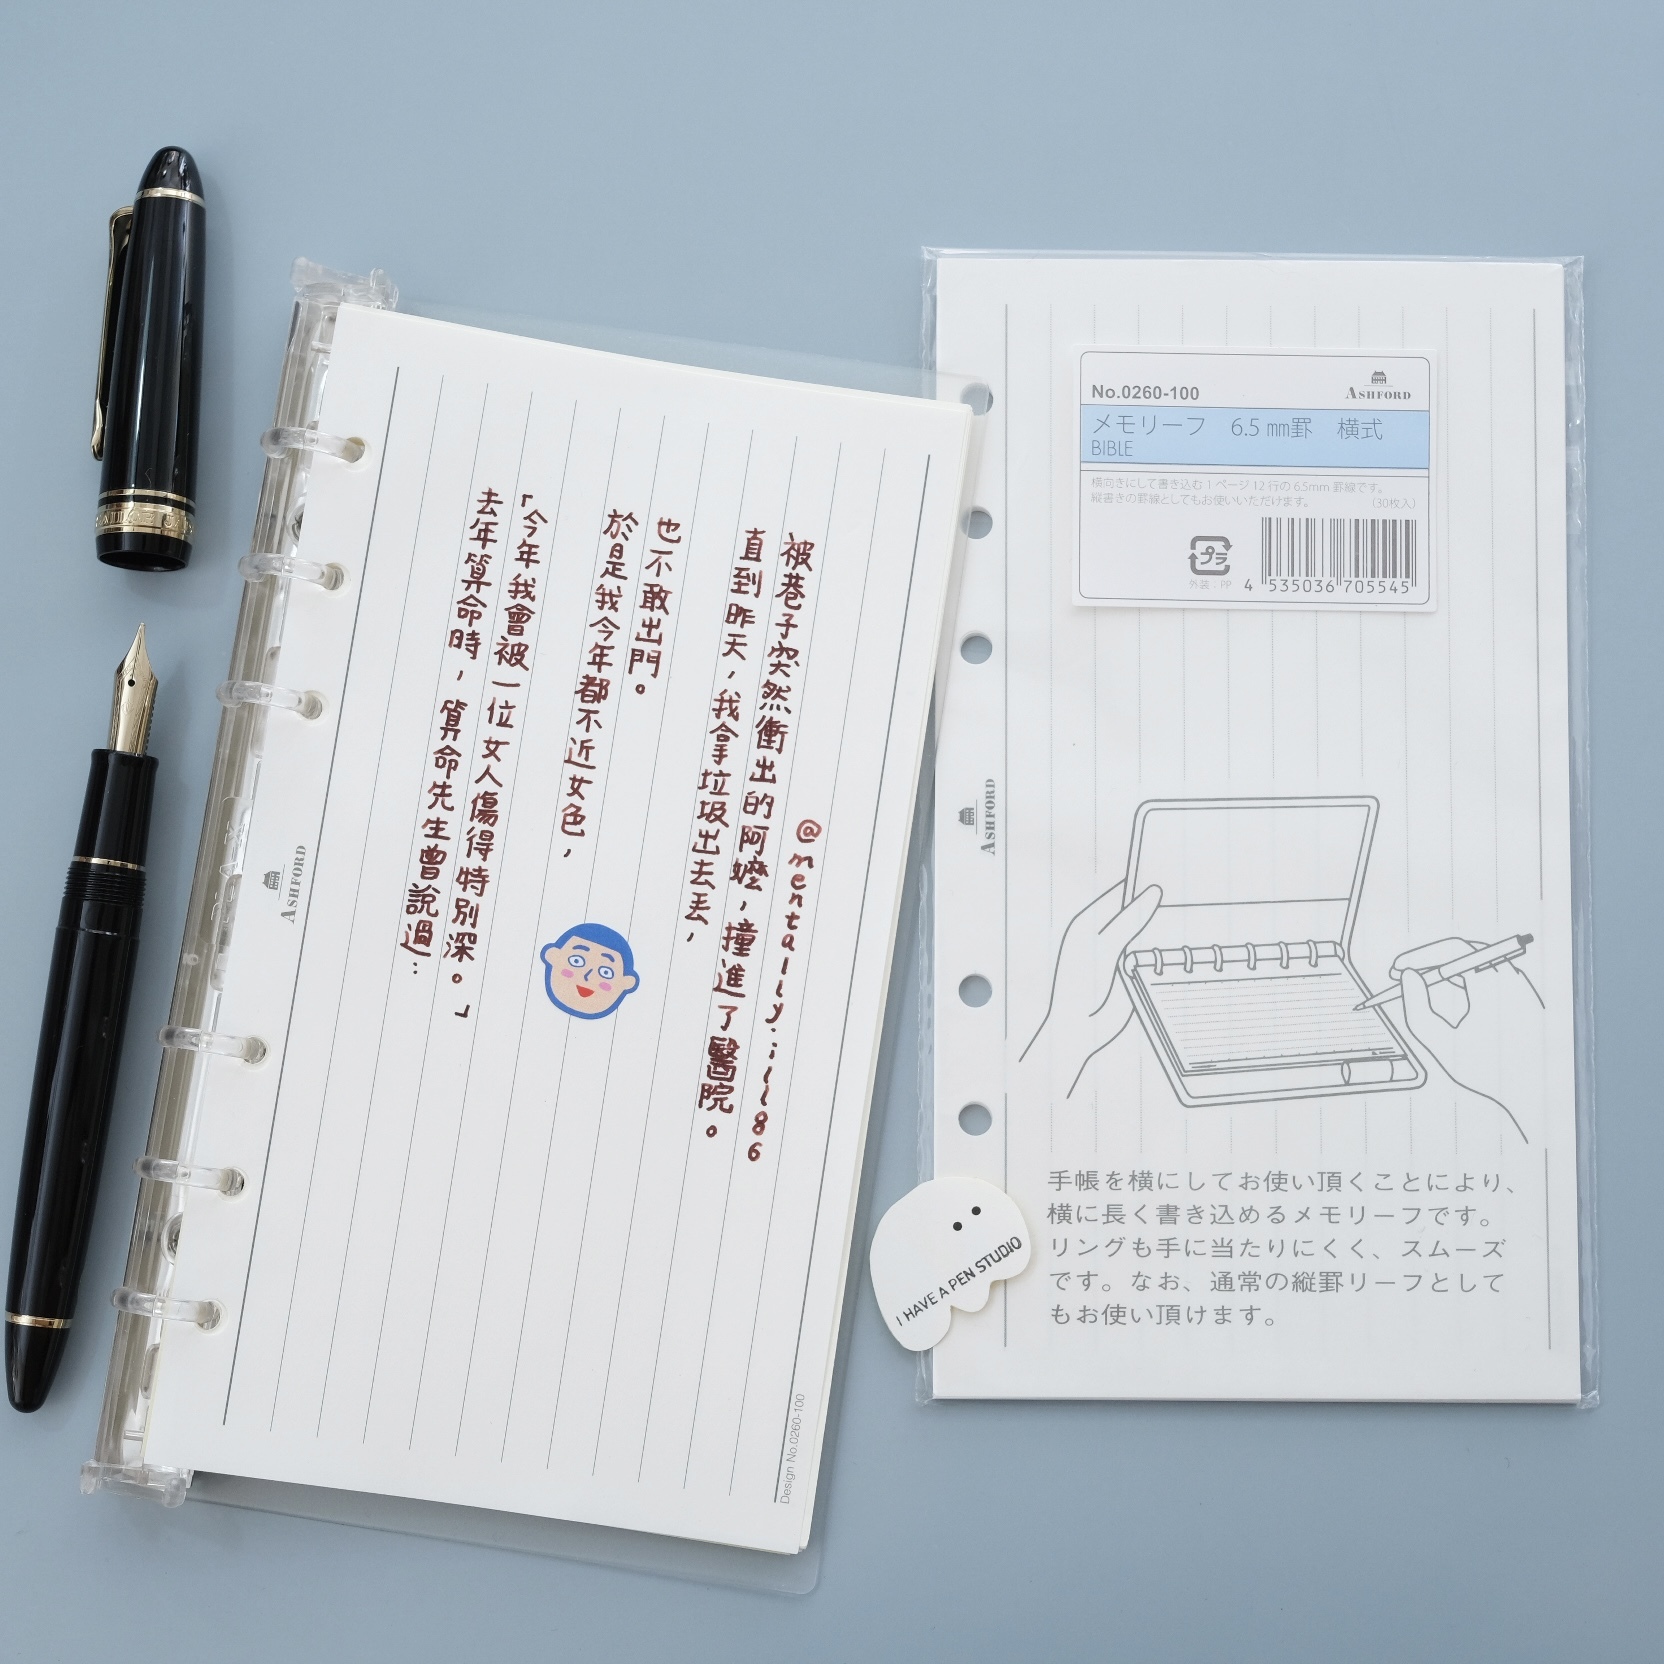 去年算命時，算命先生曾說過：
「今年我會被一位女人傷得特別深。」
於是我今年都不近女色，
也不敢出門。
直到昨天，我拿垃圾出去丟，
被巷子突然衝出的阿嬤，撞進了醫院。
@mentally.ill86
ASHFORD
Design No.0260-100
No.0260-100
ASHFORD
メモリーフ 6.5㎜罫 横式
BIBLE
横向きにして書き込む1ページ12行の6.5mm罫線です。
縦書きの罫線としてもお使いいただけます。 (30枚入)
プラ
外装：PP
4 535036 705545
ASHFORD
手帳を横にしてお使い頂くことにより、
横に長く書き込めるメモリーフです。
リングも手に当たりにくく、スムーズ
です。なお、通常の縦罫リーフとして
もお使い頂けます。
I HAVE A PEN STUDIO